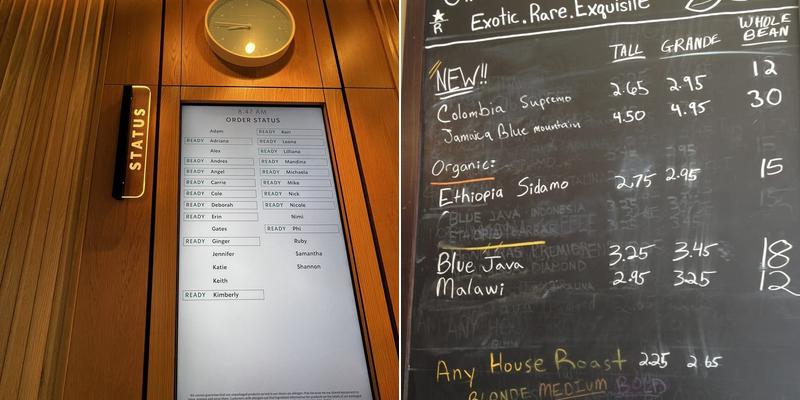 STATUS
8:47 AM
ORDER STATUS
Adam
READY Adriana
Alex
READY Andres
READY Angel
READY Carrie
READY Cole
READY Deborah
READY Erin
Gates
READY Ginger
Jennifer
Katie
Keith
READY Kimberly
READY Kari
READY Leona
READY Lilliana
READY Mandina
READY Michaela
READY Mike
READY Nick
READY Nicole
Nimi
READY Phi
Ruby
Samantha
Shannon
R
Exotic. Rare. Exquisite
TALL GRANDE WHOLE BEAN
NEW!!
Colombia Supremo 2.65 2.95 12
Jamaica Blue mountain 4.50 4.95 30
Organic:
Ethiopia Sidamo 2.75 2.95 15
BLUE JAVA INDONESIA
Blue Java 3.25 3.45 18
Malawi 2.95 325 12
Any House Roast 2.25 2.65
BLONDE MEDIUM BOLD